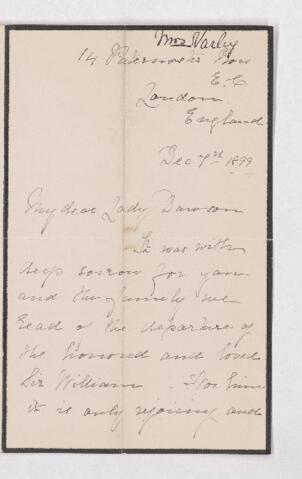 Mrs Varley
14 Paternoster Row
E.C.
London
England
Dec 7th 1899
My dear Lady Dawson
It was with
deep sorrow for you
and the family we
read of the departure of
the honored and loved
Sir William. For him
it is only rejoicing and